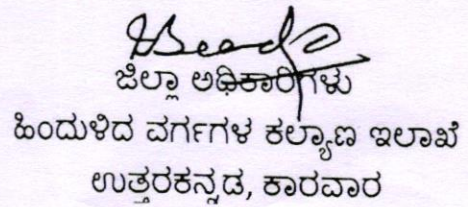 ಜಿಲ್ಲಾ ಅಧಿಕಾರಿಗಳು
ಹಿಂದುಳಿದ ವರ್ಗಗಳ ಕಲ್ಯಾಣ ಇಲಾಖೆ
ಉತ್ತರಕನ್ನಡ, ಕಾರವಾರ